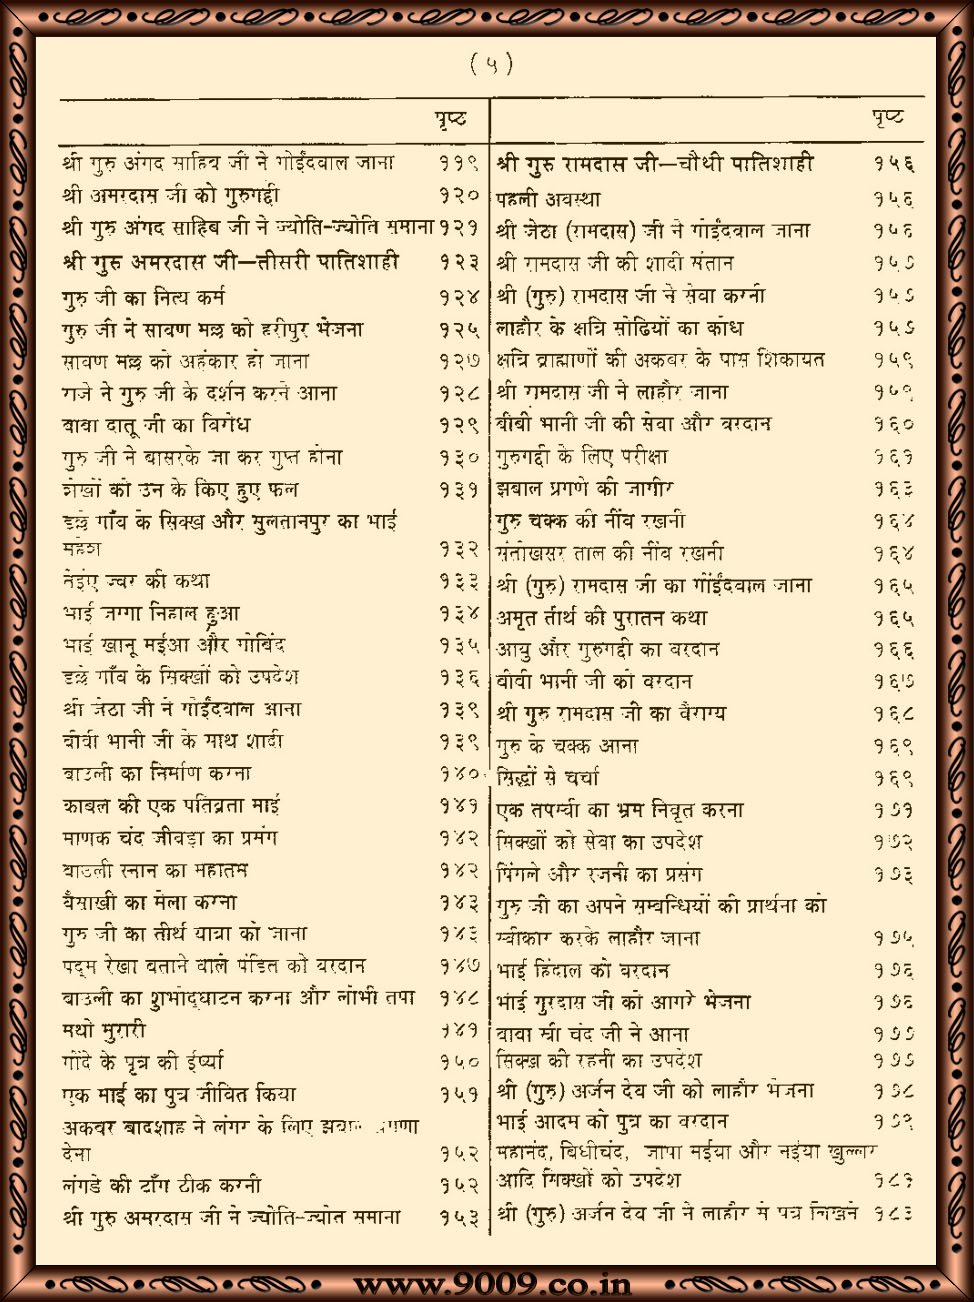 ( ५ )
पृष्ट
श्री गुरु अंगद साहिब जी ने गोईंदवाल जाना ११९
श्री अमरदास जी को गुरुगद्दी १२०
श्री गुरु अंगद साहिब जी ने ज्योति-ज्योति समाना १२१
श्री गुरु अमरदास जी—तीसरी पातिशाही १२३
गुरु जी का नित्य कर्म १२४
गुरु जी ने सावण मल्ल को हरीपुर भेजना १२५
सावण मल्ल को अहंकार हो जाना १२७
राजे ने गुरु जी के दर्शन करने आना १२८
बाबा दातू जी का विरोध १२९
गुरु जी ने बासरके जा कर गुप्त होना १३०
शेखों को उन के किए हुए फल १३१
डल्ले गाँव के सिक्ख और सुलतानपुर का भाई
महेश १३२
तेईए ज्वर की कथा १३३
भाई जग्गा निहाल हुआ १३४
भाई खानू मईआ और गोबिंद १३५
डल्ले गाँव के सिक्खों को उपदेश १३६
श्री जेठा जी ने गोईंदवाल आना १३९
बीबी भानी जी के साथ शादी १३९
बाउली का निर्माण करना १४०
काबल की एक पतिव्रता माई १४१
माणक चंद जीवड़ा का प्रसंग १४२
बाउली स्नान का महातम १४२
वैसाखी का मेला करना १४३
गुरु जी का तीर्थ यात्रा को जाना १४३
पद्म रेखा बताने वाले पंडित को वरदान १४७
बाउली का शुभोद्घाटन करना और लोभी तपा १४८
मथो मुरारी १४९
गोंदे के पुत्र की ईर्ष्या १५०
एक माई का पुत्र जीवित किया १५१
अकबर बादशाह ने लंगर के लिए झबाल
देना १५२
लंगडे की टाँग ठीक करनी १५२
श्री गुरु अमरदास जी ने ज्योति-ज्योत समाना १५३
पृष्ट
श्री गुरु रामदास जी—चौथी पातिशाही १५६
पहली अवस्था १५६
श्री जेठा (रामदास) जी ने गोईंदवाल जाना १५६
श्री रामदास जी की शादी संतान १५७
श्री (गुरु) रामदास जी ने सेवा करनी १५७
लाहौर के क्षत्रि सोढियों का क्रोध १५७
क्षत्रि ब्राह्मणों की अकबर के पास शिकायत १५९
श्री रामदास जी ने लाहौर जाना १५९
बीबी भानी जी की सेवा और वरदान १६०
गुरुगद्दी के लिए परीक्षा १६१
झबाल प्रगणे की जागीर १६३
गुरु चक्क की नींव रखनी १६४
संतोखसर ताल की नींव रखनी १६४
श्री (गुरु) रामदास जी का गोंईंदवाल जाना १६५
अमृत तीर्थ की पुरातन कथा १६५
आयु और गुरुगद्दी का वरदान १६६
बीबी भानी जी को वरदान १६७
श्री गुरु रामदास जी का वैराग्य १६८
गुरु के चक्क आना १६९
सिद्धों से चर्चा १६९
एक तपस्वी का भ्रम निवृत करना १७१
सिक्खों को सेवा का उपदेश १७२
पिंगले और रजनी का प्रसंग १७३
गुरु जी का अपने सम्बन्धियों की प्रार्थना को
स्वीकार करके लाहौर जाना १७५
भाई हिंदाल को वरदान १७६
भाई गुरदास जी को आगरे भेजना १७६
बाबा स्री चंद जी ने आना १७७
सिक्ख की रहनी का उपदेश १७७
श्री (गुरु) अर्जन देव जी को लाहौर भेजना १७८
भाई आदम को पुत्र का वरदान १७९
महानंद, बिधीचंद, जापा मईया और नईया खुल्लर
आदि सिक्खों को उपदेश १८१
श्री (गुरु) अर्जन देव जी ने लाहौर से पत्र लिखने १८३
www.9009.co.in